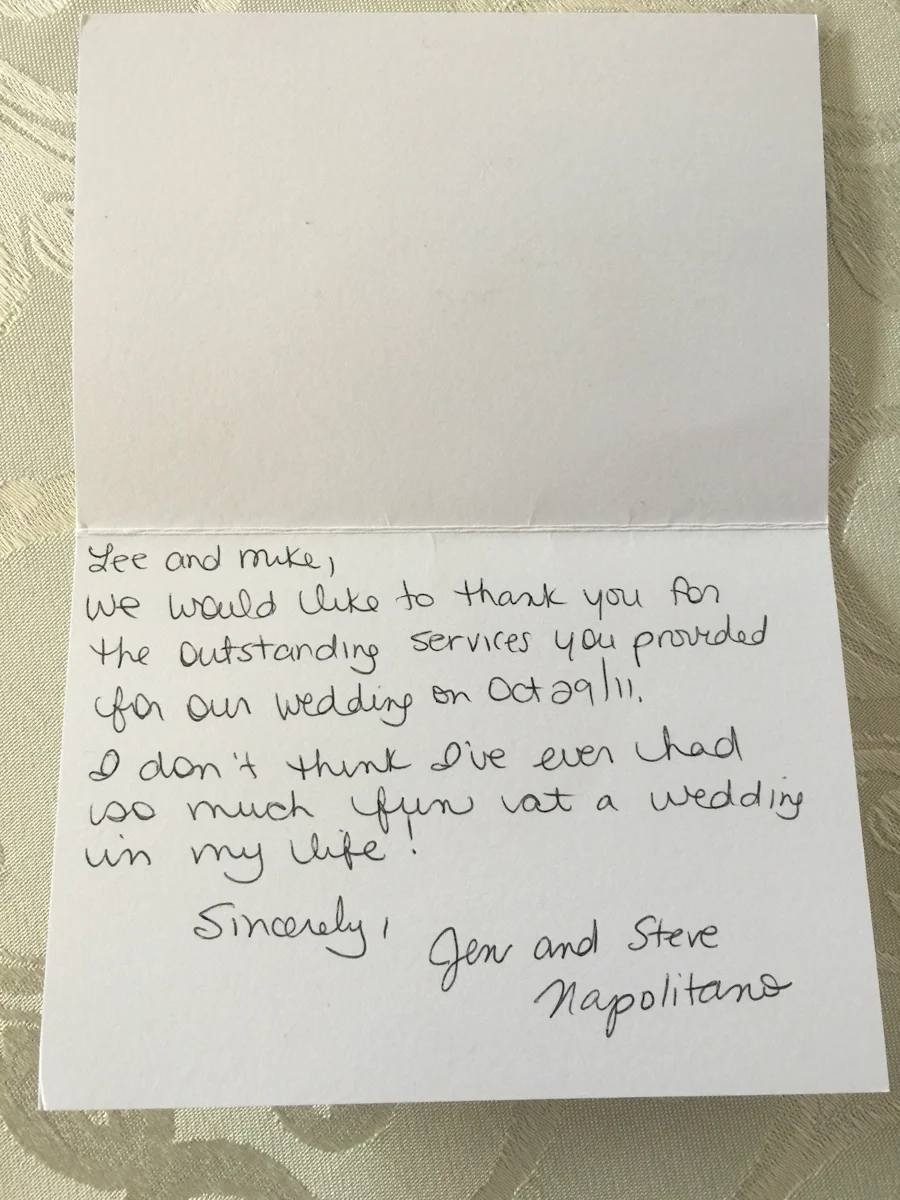 Lee and Mike,
We would like to thank you for
the outstanding services you provided
for our wedding on Oct 29/11.
I don't think I've ever had
so much fun at a wedding
in my life!
Sincerely,
Jen and Steve
Napolitano